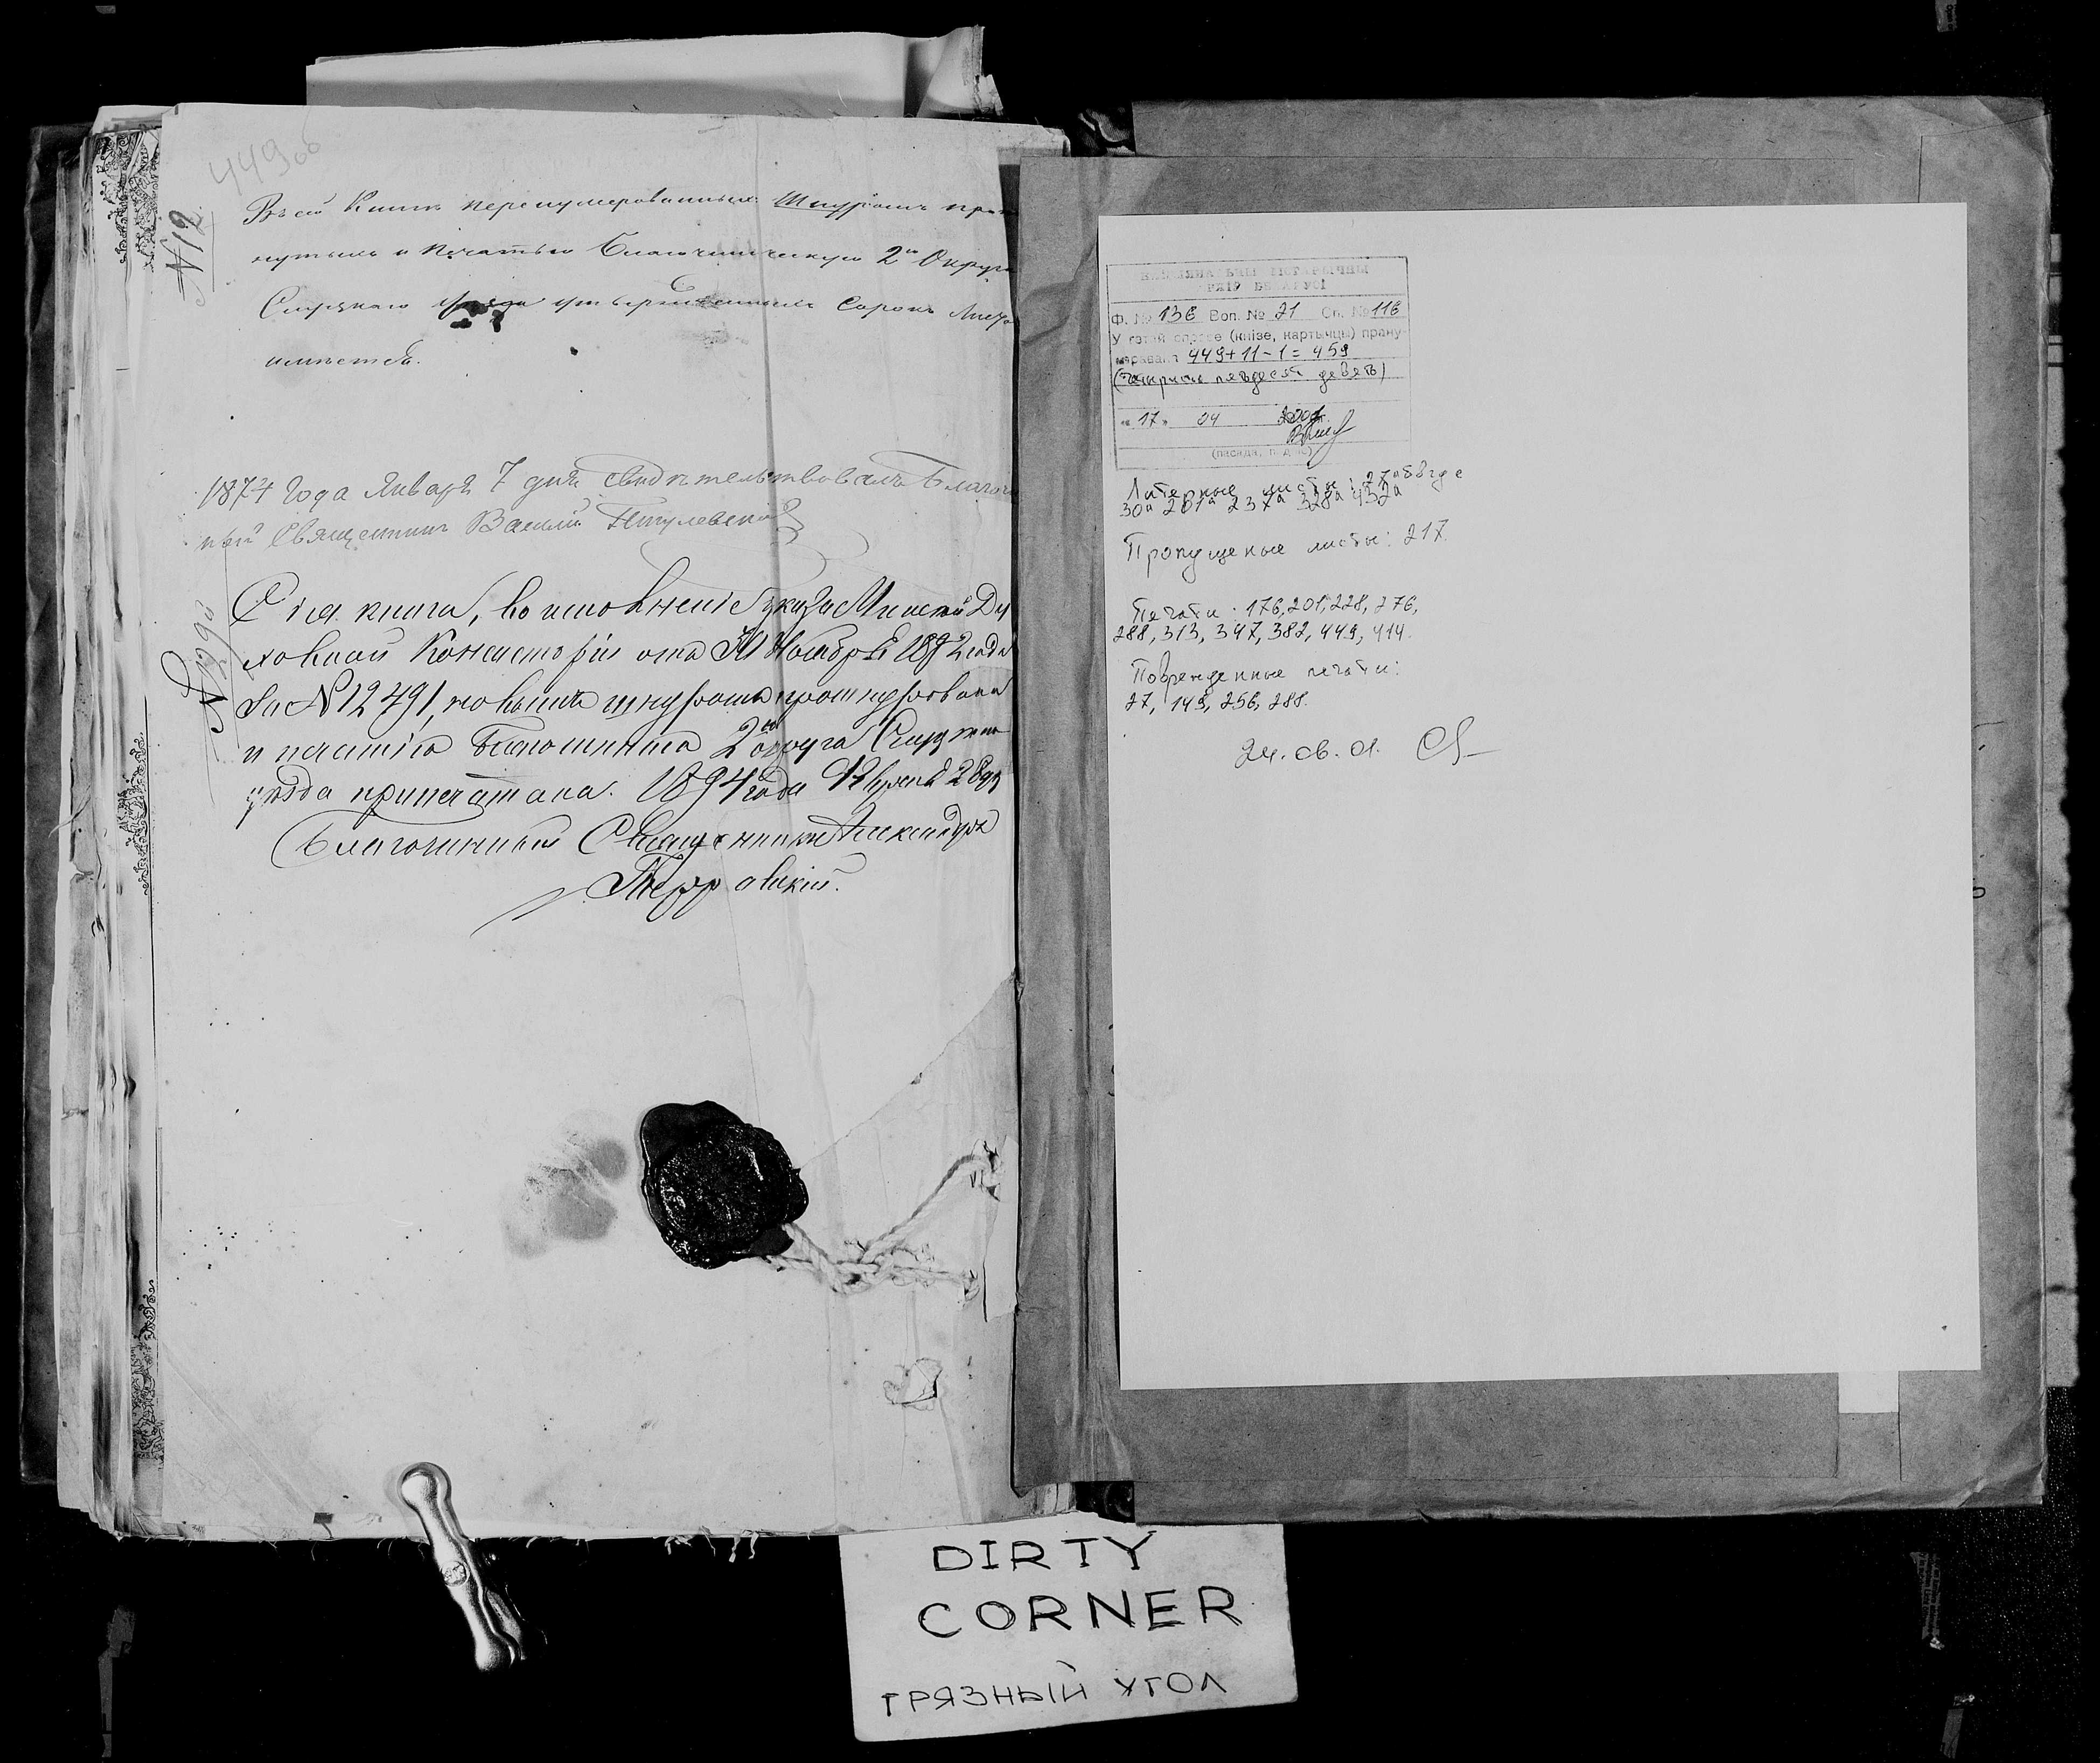 449об
№12
Въ сей Книгѣ перенумерованныхъ Шнуромъ про
нутыхъ и печатью Благочинническою 2го Округа
Слуцкаго уѣзда утвержденныхъ Сорокъ Листо
имѣется.
1874 Года Января 7 дня свидѣтельствовалъ Благочи
ный Священникъ Василій
№ 290
Сія книга, во исполненіе указа Минской Ду
ховной Консисторіи отъ 30 Ноября 1892 года
за № 12491, новымъ шнуромъ прошнурована
и печатью Благочиннаго 2го округа Слуцкаго
уѣзда припечатана. 1894 года 28 дня
Благочинный Священникъ Александръ
НАЦЫЯНАЛЬНЫ ГІСТАРЫЧНЫ
АРХІЎ БЕЛАРУСІ
Ф. № 136 Воп. № 21 Сп. № 116
У гэтай справе (кнізе, картычцы) прану-
меравана 449+11-1=459
(четыреста пятьдесят девять)
" 17 " 04 2001
(пасада, подпіс)
Литерные листы: 27абвгде
30а 201а 237а 328а 432а
Пропущеные листы: 217.
Печати: 176, 201, 228, 276,
288, 313, 347, 382, 449, 414.
Поврежденные печати:
27, 149, 256, 288.
24.06.01.
DIRTY
CORNER
ГРЯЗНЫЙ УГОЛ